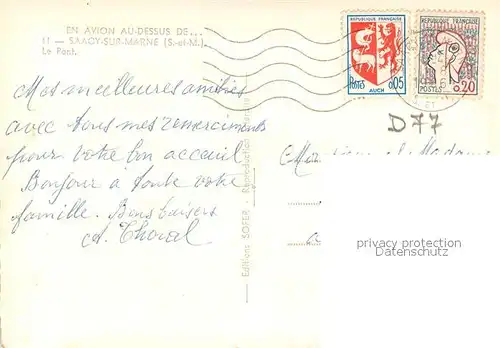 EN AVION AU-DESSUS DE...
11 — SAACY-SUR-MARNE (S.-et-M.)
Le Pont.
REPUBLIQUE FRANÇAISE
POSTES 0,05
AUCH
REPUBLIQUE FRANÇAISE
POSTES 0,20
D77
Mes meilleures amitiés
avec tous mes remerciments
pour votre bon accueil
Bonjour à toute votre
famille. Bons baisers
A. Thoral
Editions SOFER - Reproduction
et Madame
privacy protection
Datenschutz